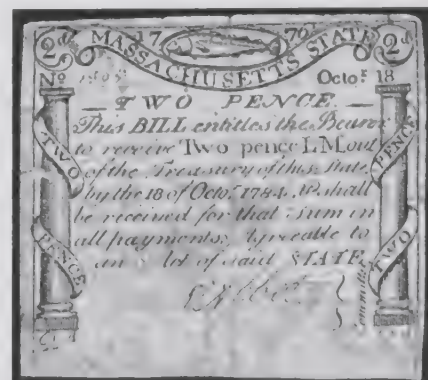 2d 17 76 2d
MASSACHUSETTS STATE
No Octor 18
TWO PENCE
This BILL entitles the Bearer
to receive Two pence L.M. out
of the Treasury of this State
by the 18 of Octor 1784. & shall
be received for that Sum in
all payments, Agreeable to
an lot of said STATE
TWO
PENCE
PENCE
TWO